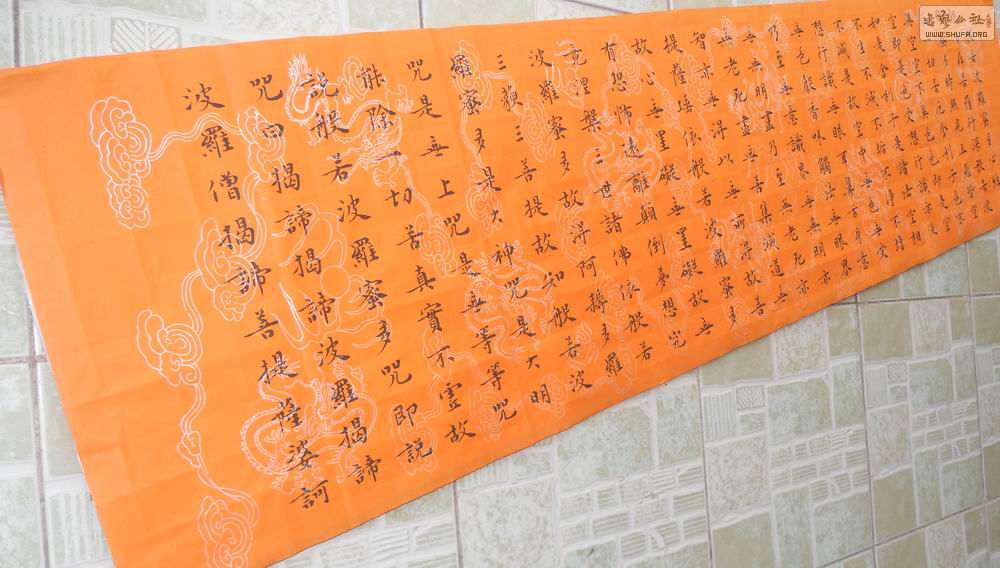 空即是色受想行識亦復
如是舍利子是諸法空相
不生不滅不垢不淨不增
不減是故空中無色無受
想行識無眼耳鼻舌身意
無色聲香味觸法無眼界
乃至無意識界無無明亦
無無明盡乃至無老死亦
無老死盡無苦集滅道無
智亦無得以無所得故菩
提薩埵依般若波羅蜜多
故心無罣礙無罣礙故無
有恐怖遠離顛倒夢想究
竟涅槃三世諸佛依般若
波羅蜜多故得阿耨多羅
三藐三菩提故知般若波
羅蜜多是大神咒是大明
咒是無上咒是無等等咒
能除一切苦真實不虛故
說般若波羅蜜多咒即說
咒曰揭諦揭諦波羅揭諦
波羅僧揭諦菩提薩婆訶
WWW.SHUFA.ORG